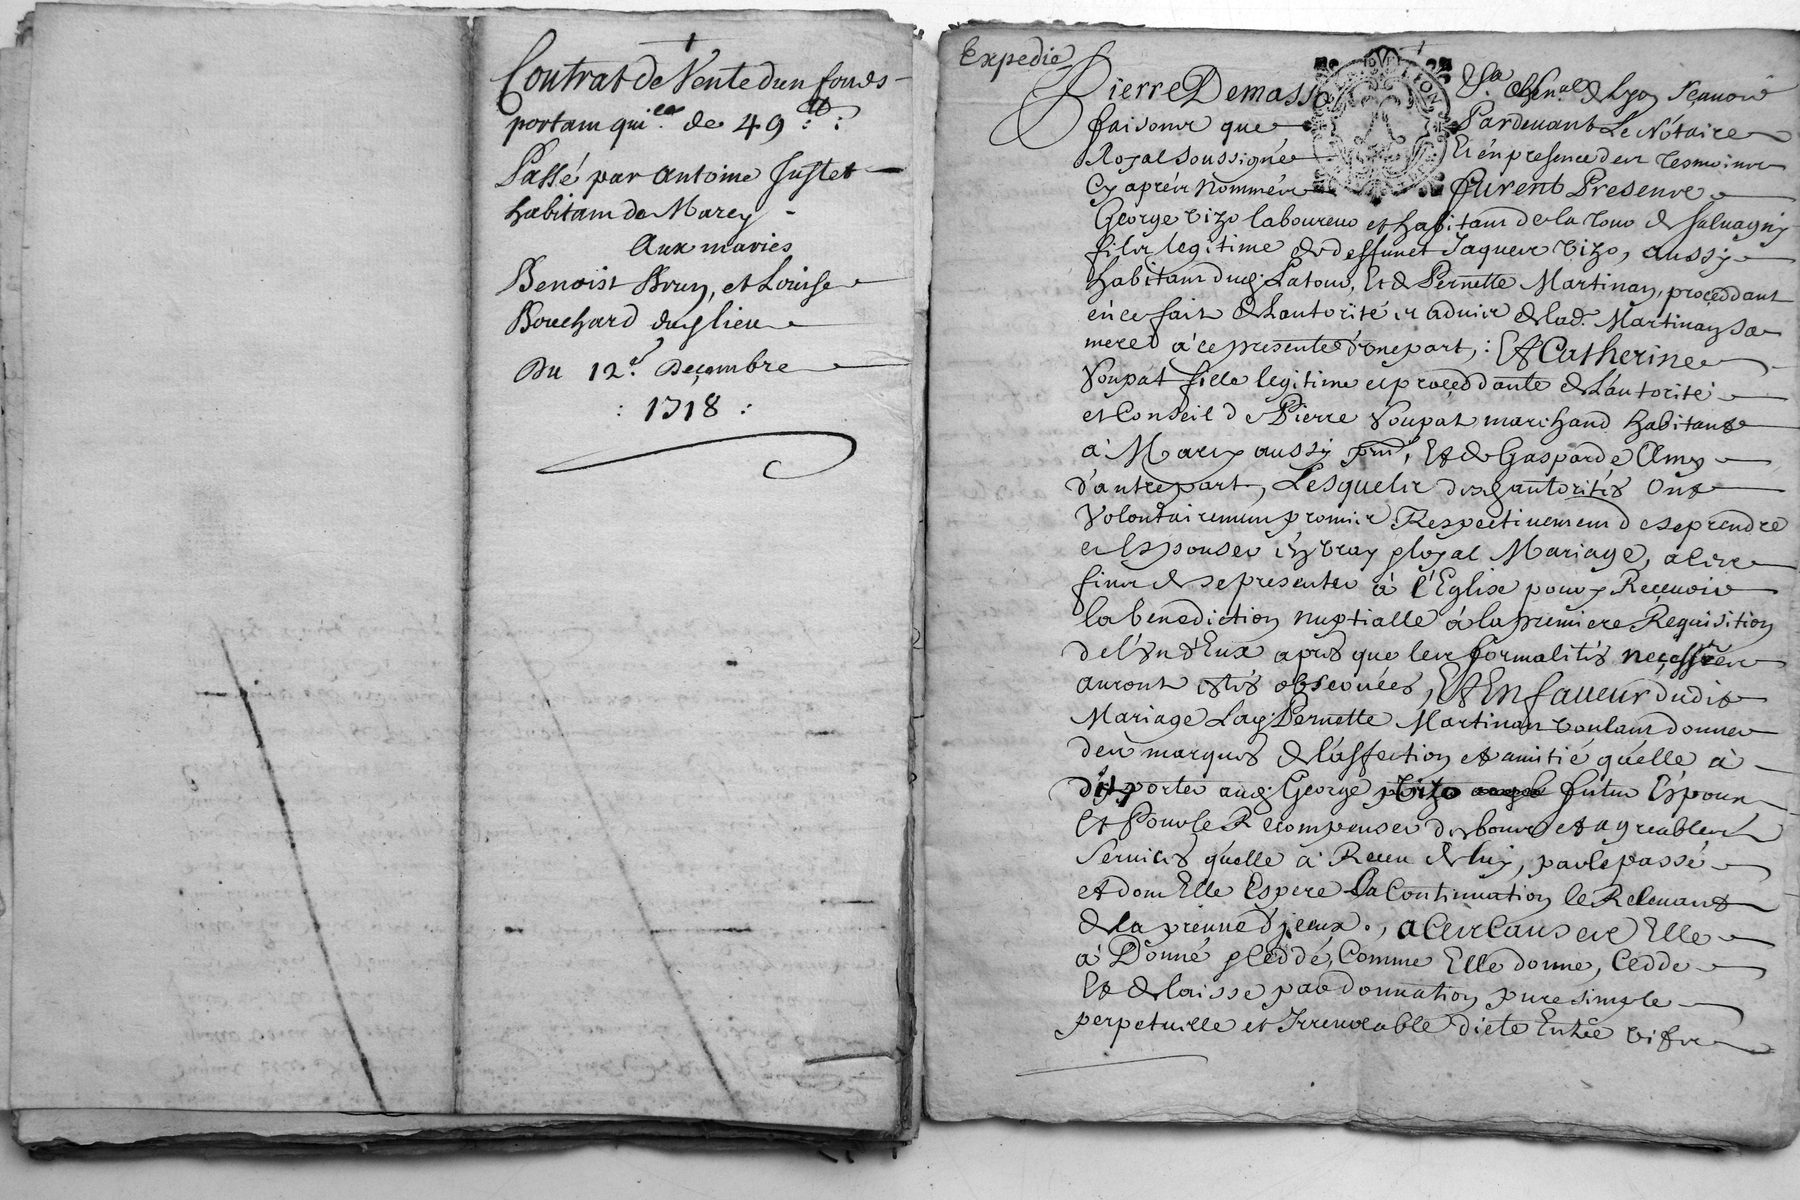 Contrat de Vente dun fonds
portam qui.ce de 49 ₶ :
Passé par Antoine Justet
habitam de Marcy
Aux mariés
Benoist Brun, et Louise
Bouchard dud lieu
Du 12.e Decembre
: 1718 :
Expedié
Pierre Demasso &
faisonr que Pardevant Le Nótaire
Royal soussigné Et én presence der tesmoinr
Cy aprér Nommér furent Presenr
George Vizo laboureur et habitam de la Tour de Salvagny
filr legitime de deffunct Jaquer Vizo, aussy
habitam dud. Latour, Et de Pernette Martinay, proceddant
én ce fait de Lautorité et advir de lad. Martinay sa
mere à ce presente d'vne part, : Et Catherine
Voupat fille legitime et proceddante de Lautorité
et Conseil de Pierre Voupat marchand habitant
à Marcy aussy pnt, Et de Gasparde
d'autre part, Lesquelr desd. autorités Ont
Volontairemem promir Respectivemem de se prendre
et Espouser én vray & loyal Mariage, à cer
finr de se presenter à l'Eglise pour y Recevoir
la benediction nuptialle à la premiere Requisition
de l'vn d'Eux aprés que ler formalités necessrer
auront estés observées, Et En faveur dudit
Mariage Lad. Pernette Martinay voulant donner
der marques de l'affection et amitié qu'elle à
dit porter aud. George Vizo futur Espoux
Et Pour le Recompenser des bonr et agreabler
Services qu'elle à Receu de luy, par le passé
et dom Elle Espere la Continuation le Relevant
de la preuve d'jceux., à Cer Causes Elle
à Donné & Ceddé, Comme Elle donne, Cedde
Et delaisse par donnation pure simple
perpetuelle et Irrevocable dicte Entre vifr